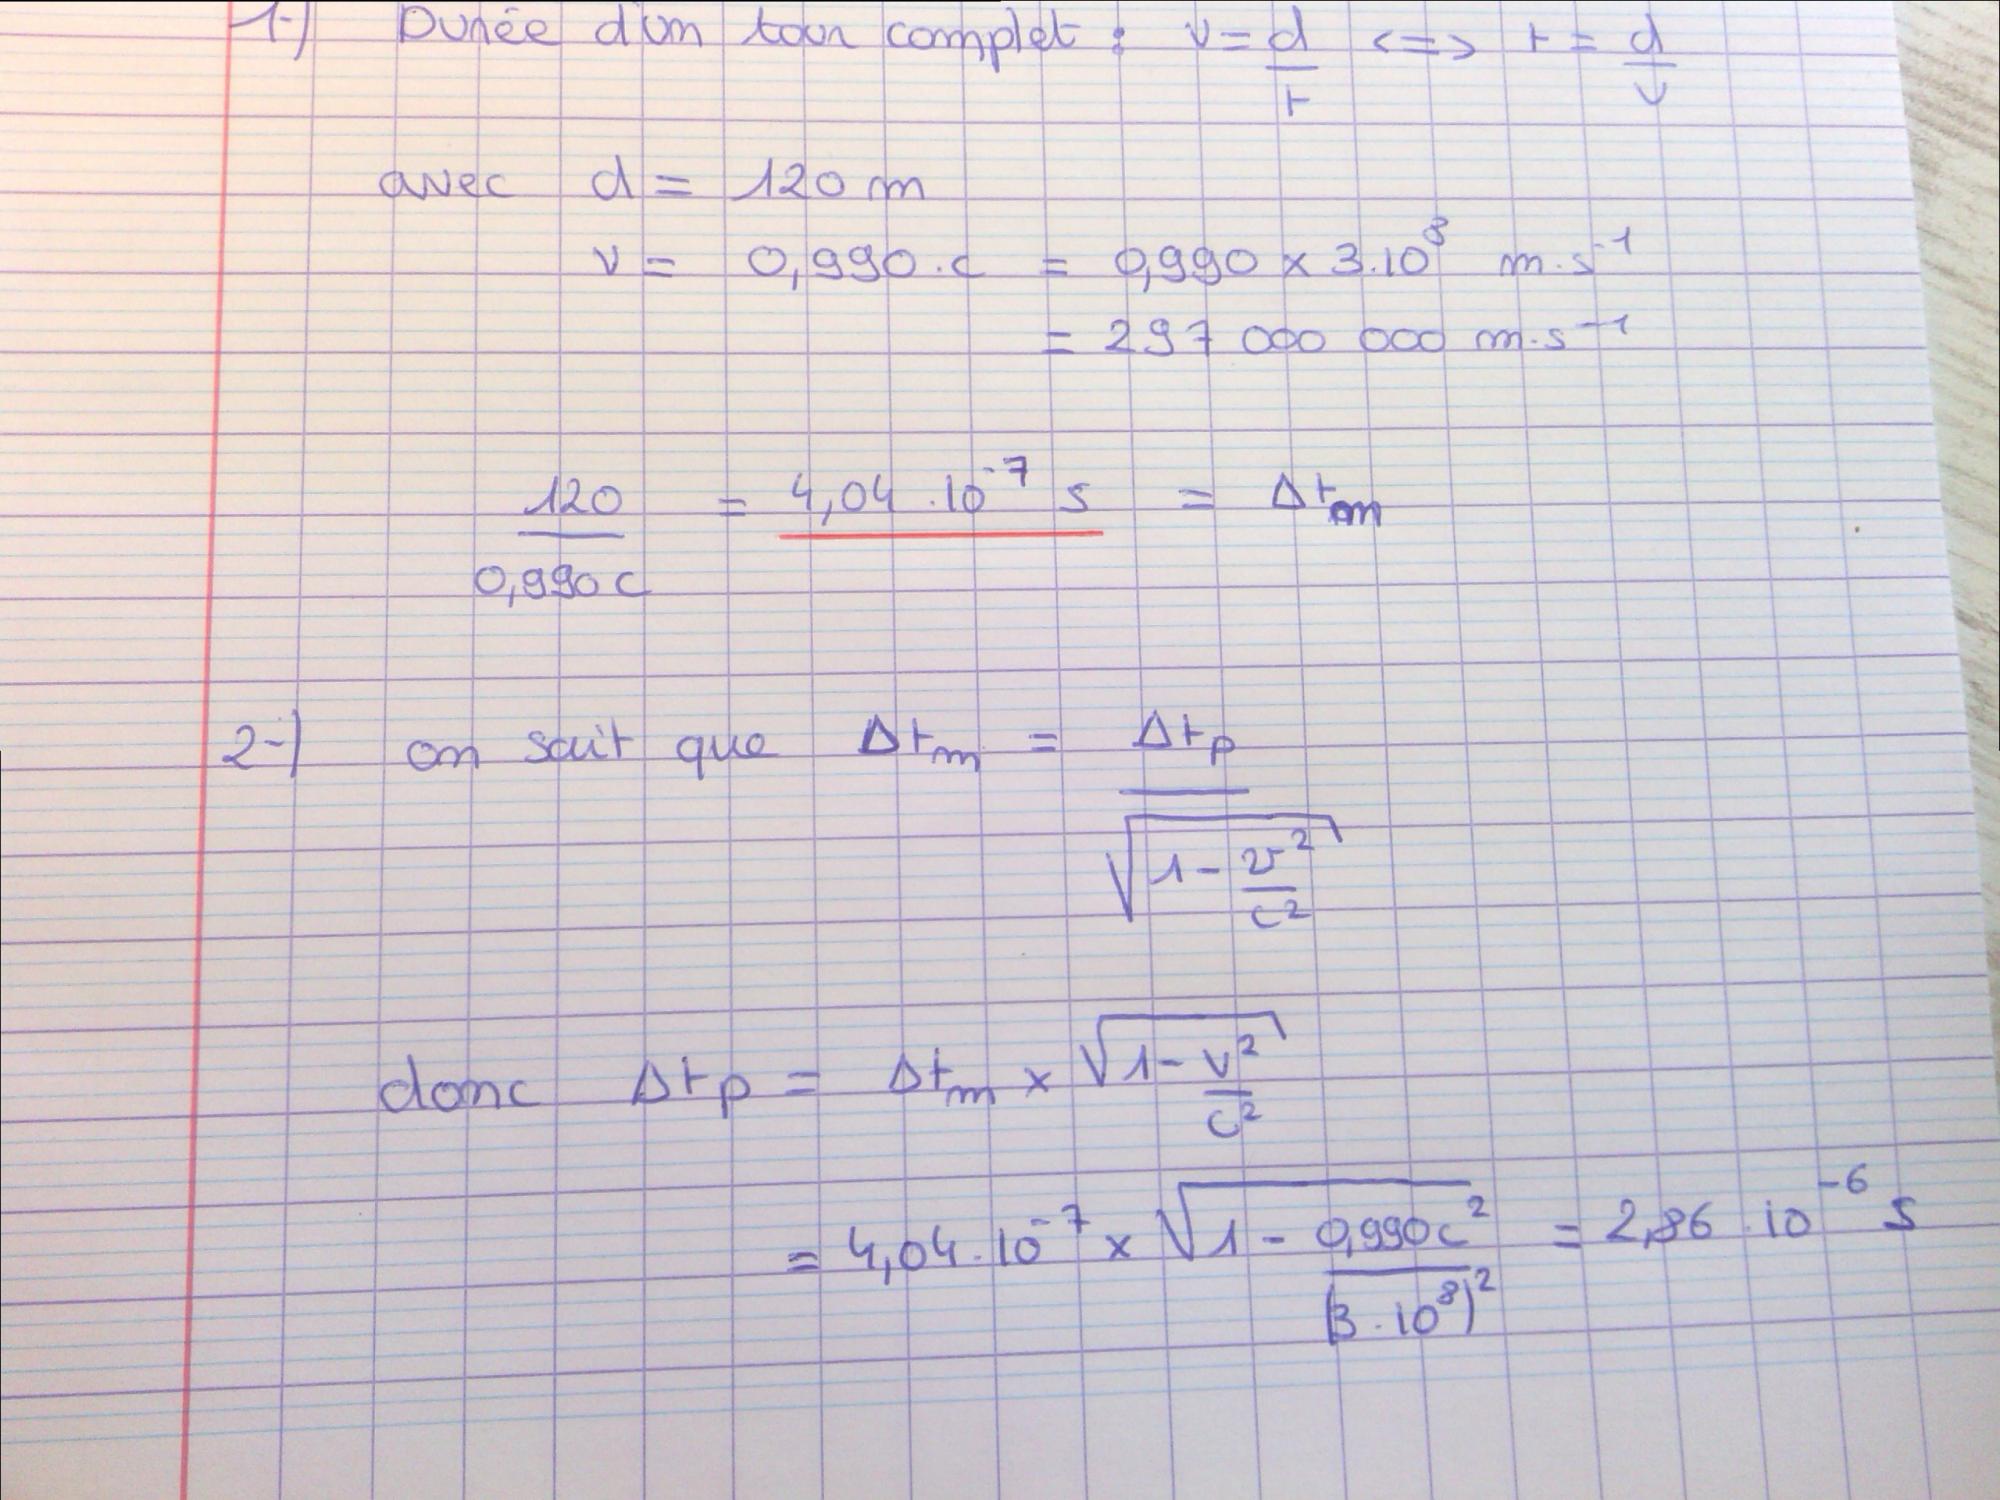 1-) Durée d'un tour complet : v = d/t <=> t = d/v
avec d = 120 m
v = 0,990.c = 0,990 x 3.10⁸ m.s⁻¹
= 297 000 000 m.s⁻¹
120/0,990c = 4,04.10⁻⁷ s = Δtm
2-) on sait que Δtm = Δtp/√(1 - v²/c²)
donc Δtp = Δtm x √(1 - v²/c²)
= 4,04.10⁻⁷ x √(1 - 0,990c²/(3.10⁸)²) = 2,86.10⁻⁶ s